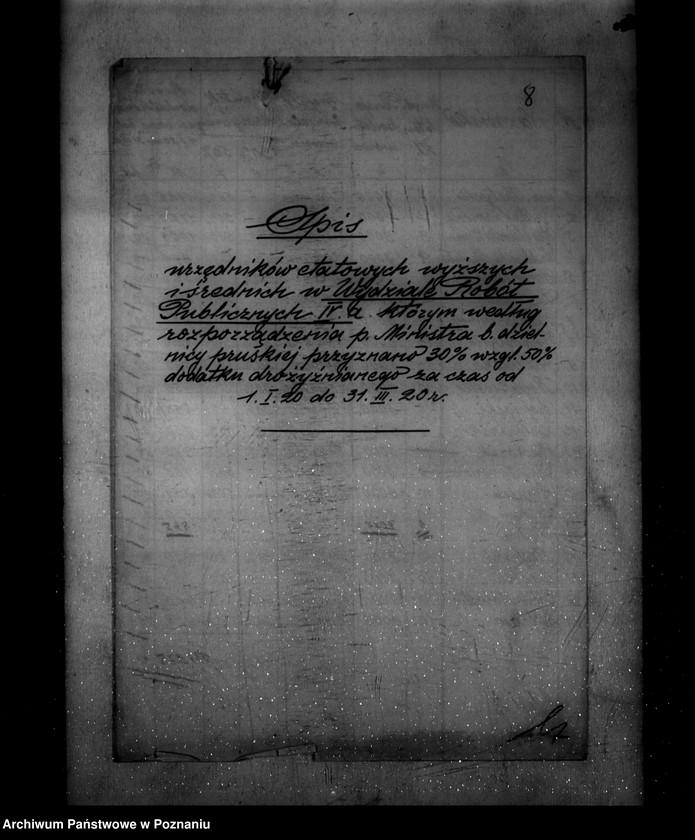 8
Spis
urzędników etatowych wyższych
i średnich w Wydziale Robót
Publicznych IV. a. którym według
rozporządzenia p. Ministra b. dziel-
nicy pruskiej przyznano 30% wzgl. 50%
dodatku drożyźnianego za czas od
1. I. 20 do 31. III. 20 r.
Archiwum Państwowe w Poznaniu